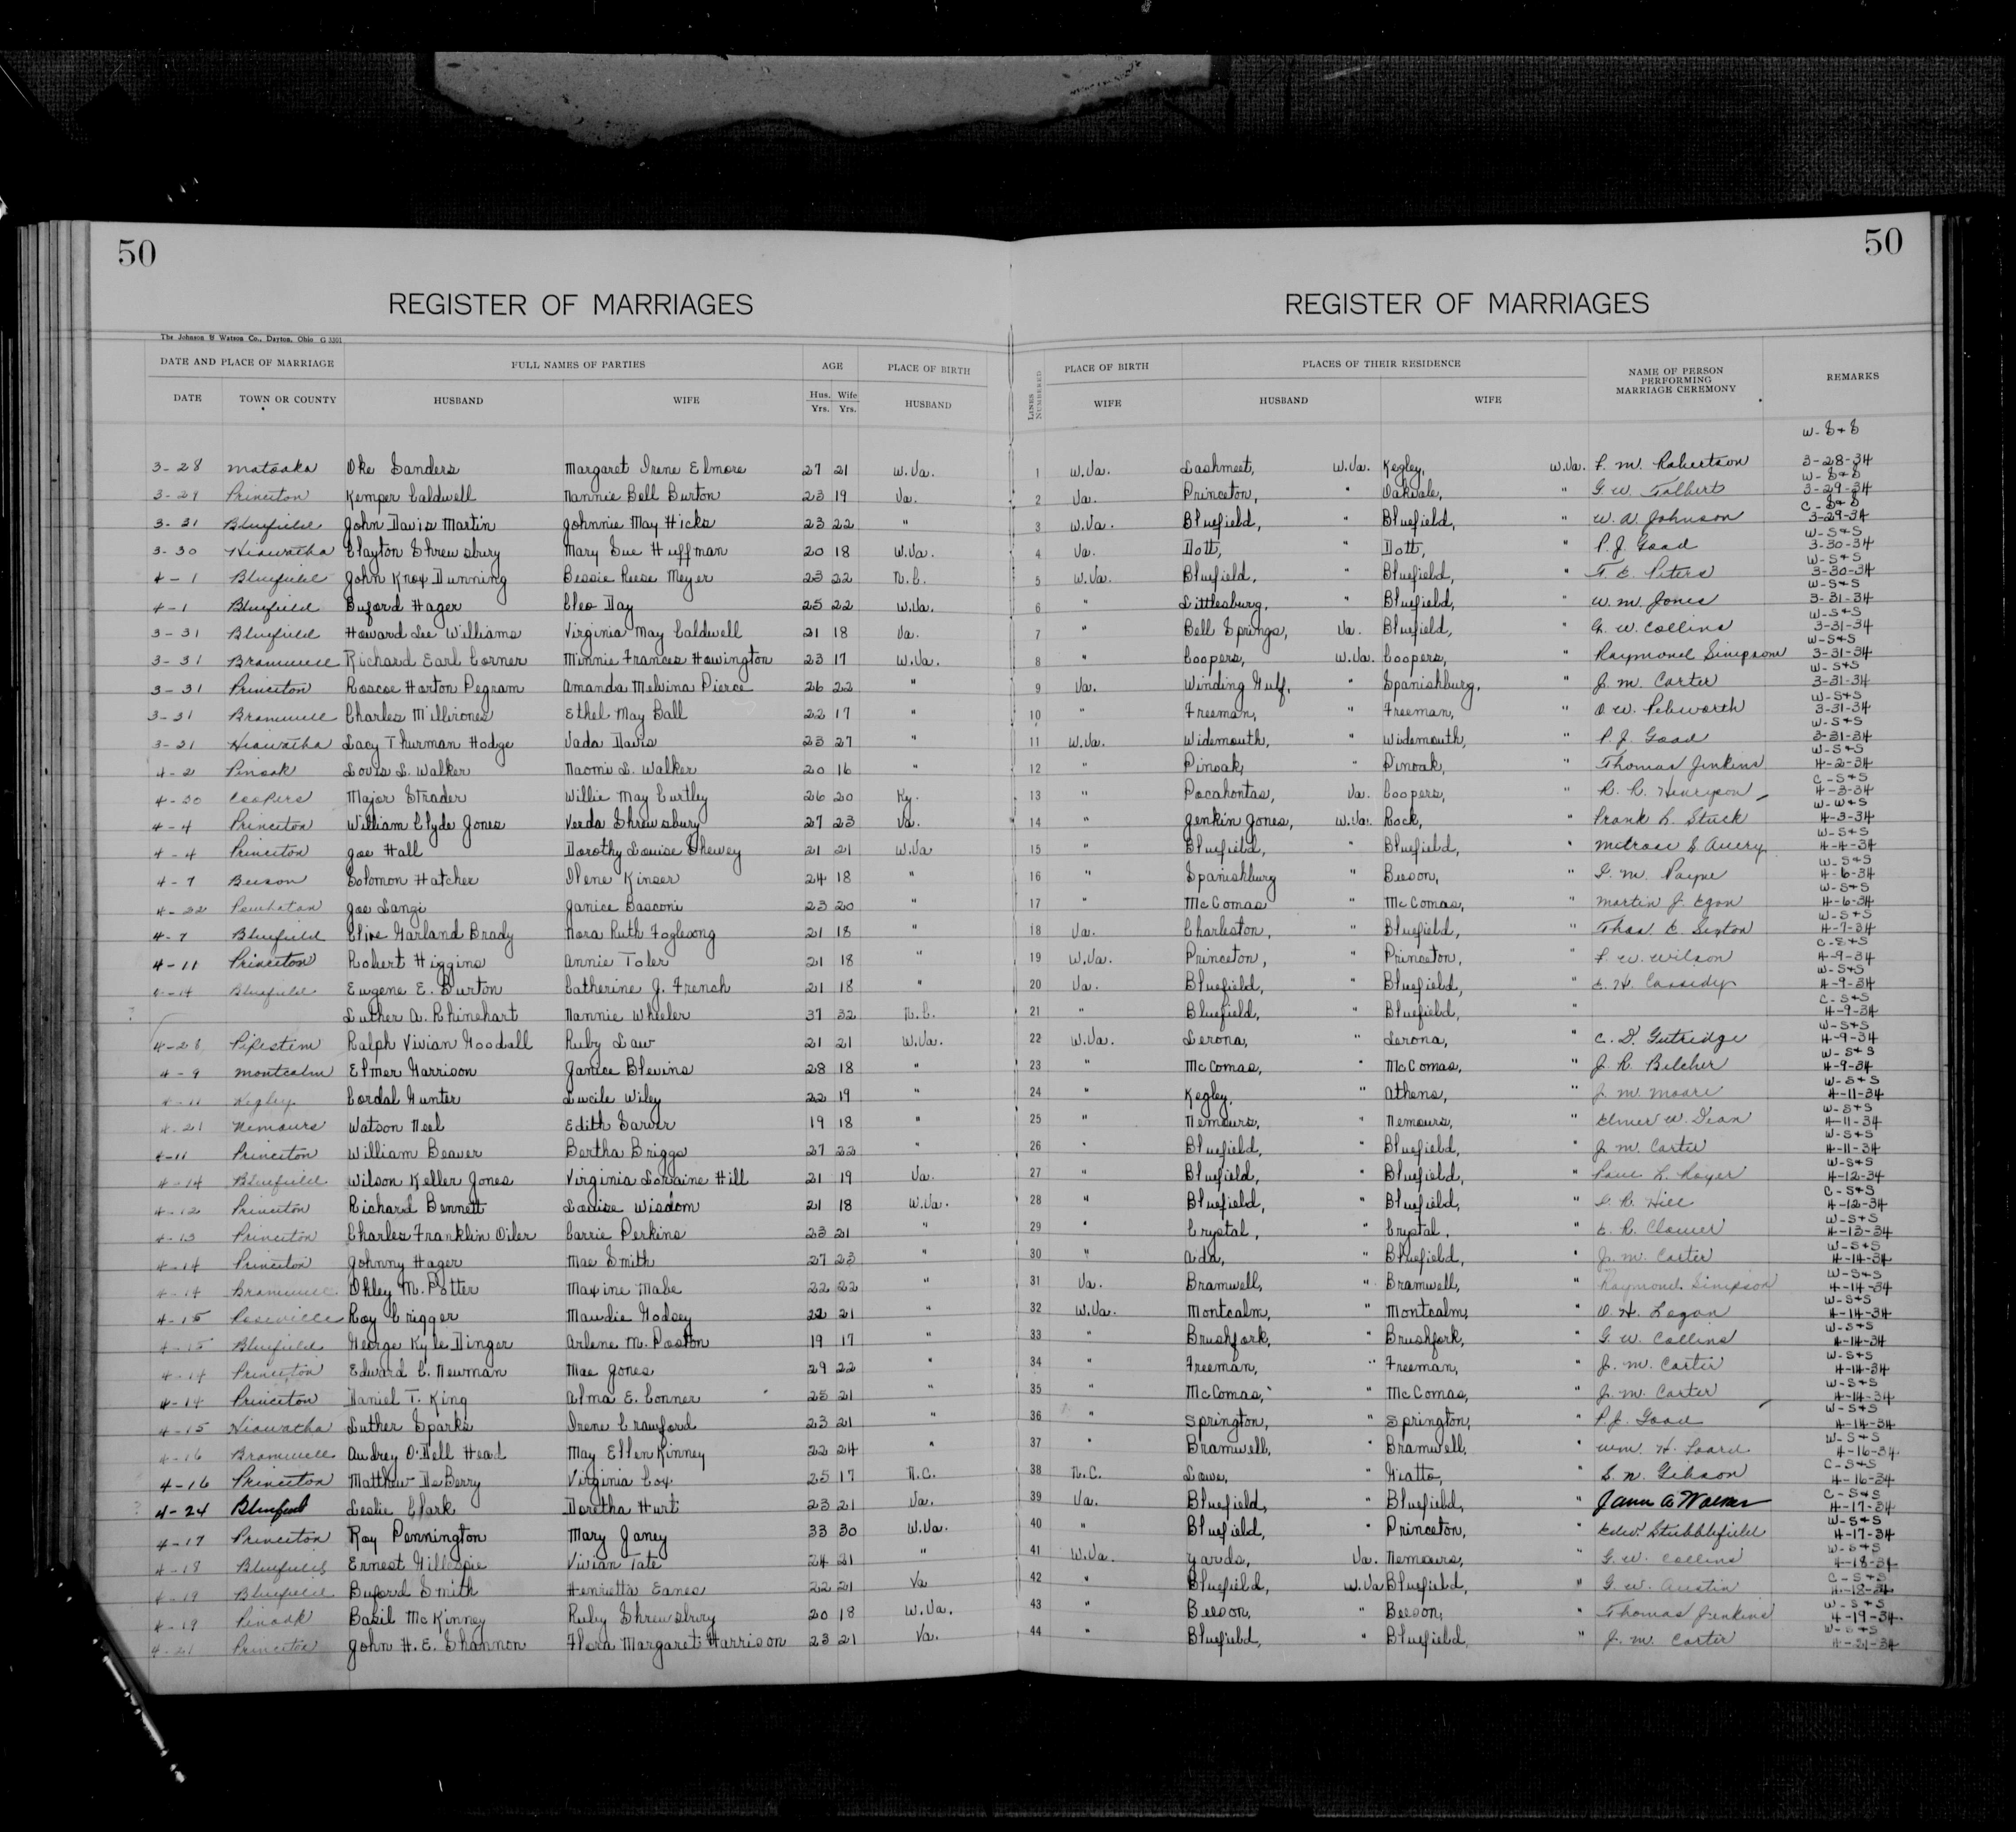 50
50
REGISTER OF MARRIAGES
REGISTER OF MARRIAGES
The Johnson & Watson Co., Dayton, Ohio G 3301
DATE AND PLACE OF MARRIAGE FULL NAMES OF PARTIES AGE PLACE OF BIRTH LINES NUMBERED PLACE OF BIRTH PLACES OF THEIR RESIDENCE NAME OF PERSON PERFORMING MARRIAGE CEREMONY REMARKS
DATE TOWN OR COUNTY HUSBAND WIFE Hus. Yrs. Wife Yrs. HUSBAND WIFE HUSBAND WIFE
3-28 Matoaka Oke Sanders Margaret Irene Elmore 27 21 W.Va. 1 W.Va. Lashmeet, W.Va. Kegley, W.Va. F. M. Robertson W-S+S 3-28-34
3-29 Princeton Kemper Caldwell Nannie Bell Burton 23 19 Va. 2 Va. Princeton, " Oakvale, " G. W. Tolbert W-S+S 3-29-34
3-31 Bluefield John Davis Martin Johnnie May Hicks 23 22 " 3 W.Va. Bluefield, " Bluefield, " W. A. Johnson C-S+S 3-29-34
3-30 Hiawatha Clayton Shrewsbury Mary Sue Huffman 20 18 W.Va. 4 Va. Dott, " Dott, " P. J. Goad W-S+S 3-30-34
4-1 Bluefield John Knox Dunning Bessie Reese Meyer 23 22 N.C. 5 W.Va. Bluefield, " Bluefield, " T. E. Peters W-S+S 3-30-34
4-1 Bluefield Buford Hager Cleo Day 25 22 W.Va. 6 " Littlesburg, " Bluefield, " W. M. Jones W-S+S 3-31-34
3-31 Bluefield Howard Lee Williams Virginia May Caldwell 21 18 Va. 7 " Bell Springs, Va. Bluefield, " G. W. Collins W-S+S 3-31-34
3-31 Bramwell Richard Earl Corner Minnie Frances Howington 23 17 W.Va. 8 " Coopers, W.Va. Coopers, " Raymond Simpson W-S+S 3-31-34
3-31 Princeton Roscoe Horton Pegram Amanda Melvina Pierce 26 22 " 9 Va. Winding Gulf, " Spanishburg, " J. M. Carter W-S+S 3-31-34
3-31 Bramwell Charles Millirones Ethel May Ball 22 17 " 10 " Freeman, " Freeman, " O. W. W-S+S 3-31-34
3-31 Hiawatha Lacy Thurman Hodge Vada Davis 23 27 " 11 W.Va. Widemouth, " Widemouth, " P. J. Goad W-S+S 3-31-34
4-2 Pinoak Lovis L. Walker Naomi L. Walker 20 16 " 12 " Pinoak, " Pinoak, " Thomas Jenkins W-S+S 4-2-34
4-30 Coopers Major Strader Willie May Curtley 26 20 Ky. 13 " Pocahontas, Va. Coopers, " R. R. C-S+S 4-3-34
4-4 Princeton William Clyde Jones Veeda Shrewsbury 27 23 Va. 14 " Jenkin Jones, W.Va. Rock, " Frank L. Stuck W-W+S 4-3-34
4-4 Princeton Joe Hall Dorothy Louise Shewey 21 21 W.Va 15 " Bluefield, " Bluefield, " Avery W-S+S 4-4-34
4-7 Beeson Solomon Hatcher Ilene Kinser 24 18 " 16 " Spanishburg " Beeson, " G. M. Payne W-S+S 4-6-34
4-22 Powhatan Joe Langi Janice Basconi 23 20 " 17 " McComas " McComas, " Martin J. Egan W-S+S 4-6-34
4-7 Bluefield Clive Garland Brady Nora Ruth Foglesong 21 18 " 18 Va. Charleston, " Bluefield, " Thos E. Sexton W-S+S 4-7-34
4-11 Princeton Robert Higgins Annie Toler 21 18 " 19 W.Va. Princeton, " Princeton, " F. W. Wilson C-S+S 4-9-34
4-14 Bluefield Eugene E. Burton Catherine J. French 21 18 " 20 Va. Bluefield, " Bluefield, " E. H. Cassidy W-S+S 4-9-34
? Luther A. Rhinehart Nannie Wheeler 37 32 N.C. 21 " Bluefield, " Bluefield, " C-S+S 4-9-34
4-28 Pipestem Ralph Vivian Goodall Ruby Law 21 21 W.Va. 22 W.Va. Lerona, " Lerona, " C. D. Gutridge W-S+S 4-9-34
4-9 Montcalm Elmer Garrison Janice Blevins 28 18 " 23 " McComas, " McComas, " J. R. Belcher W-S+S 4-9-34
4-11 Kegley Cordal Gunter Lucile Wiley 22 19 " 24 " Kegley, " Athens, " J. M. Moore W-S+S 4-11-34
4-21 Nemours Watson Neel Edith Sarver 19 18 " 25 " Nemours, " Nemours, " Elmer W. Dean W-S+S 4-11-34
4-11 Princeton William Beaver Bertha Briggs 27 22 " 26 " Bluefield, " Bluefield, " J. M. Carter W-S+S 4-11-34
4-14 Bluefield Wilson Keller Jones Virginia Lorraine Hill 21 19 Va. 27 " Bluefield, " Bluefield, " Paul L. Royer W-S+S 4-12-34
4-12 Princeton Richard Bennett Louise Wisdom 21 18 W.Va. 28 " Bluefield, " Bluefield, " R. Hill C-S+S 4-12-34
4-13 Princeton Charles Franklin Oiler Carrie Perkins 23 21 " 29 " Crystal, " Crystal, " E. R. Clower W-S+S 4-13-34
4-14 Princeton Johnny Hager Mae Smith 27 23 " 30 " Ada, " Bluefield, " J. M. Carter W-S+S 4-14-34
4-14 Bramwell Okley M. Potter Maxine Mabe 22 22 " 31 Va. Bramwell, " Bramwell, " Raymond Simpson W-S+S 4-14-34
4-15 Roy Crigger Maudie Godsey 22 21 " 32 W.Va. Montcalm, " Montcalm, " O. H. Logan W-S+S 4-14-34
4-15 Bluefield George Kyle Dinger Arlene M. Poston 19 17 " 33 " Brushfork, " Brushfork, " G. W. Collins W-S+S 4-14-34
4-14 Princeton Edward C. Newman Mae Jones 29 22 " 34 " Freeman, " Freeman, " J. M. Carter W-S+S 4-14-34
4-14 Princeton Daniel T. King Alma E. Conner 25 21 " 35 " McComas, " McComas, " J. M. Carter W-S+S 4-14-34
4-15 Hiawatha Luther Sparks Irene Crawford 23 21 " 36 " Springton, " Springton, " P. J. Goad W-S+S 4-14-34
4-16 Bramwell Audrey O'Dell Head May Ellen Kinney 22 24 " 37 " Bramwell, " Bramwell, " Wm. H. W-S+S 4-16-34
4-16 Princeton Matthew DeBerry Virginia Cox 25 17 N.C. 38 N.C. Lowe, " Giatto, " S. N. Gibson C-S+S 4-16-34
? 4-24 Bluefield Leslie Clark Doretha Hurt 23 21 Va. 39 Va. Bluefield, " Bluefield, " C-S+S 4-17-34
4-17 Princeton Roy Pennington Mary Janey 33 30 W.Va. 40 " Bluefield, " Princeton, " Edw. Stubblefield W-S+S 4-17-34
4-18 Bluefield Ernest Gillespie Vivian Tate 24 21 " 41 W.Va. Yards, Va. Nemours, " G. W. Collins W-S+S 4-18-34
4-19 Bluefield Buford Smith Henrietta Eanes 22 21 Va 42 " Bluefield, W.Va Bluefield, " G. W. Austin C-S+S 4-18-34
4-19 Pinoak Basil McKinney Ruby Shrewsbury 20 18 W.Va. 43 " Beeson, " Beeson, " Thomas Jenkins W-S+S 4-19-34
4-21 Princeton John H. E. Shannon Flora Margaret Harrison 23 21 Va. 44 " Bluefield, " Bluefield, " J. M. Carter W-S+S 4-21-34